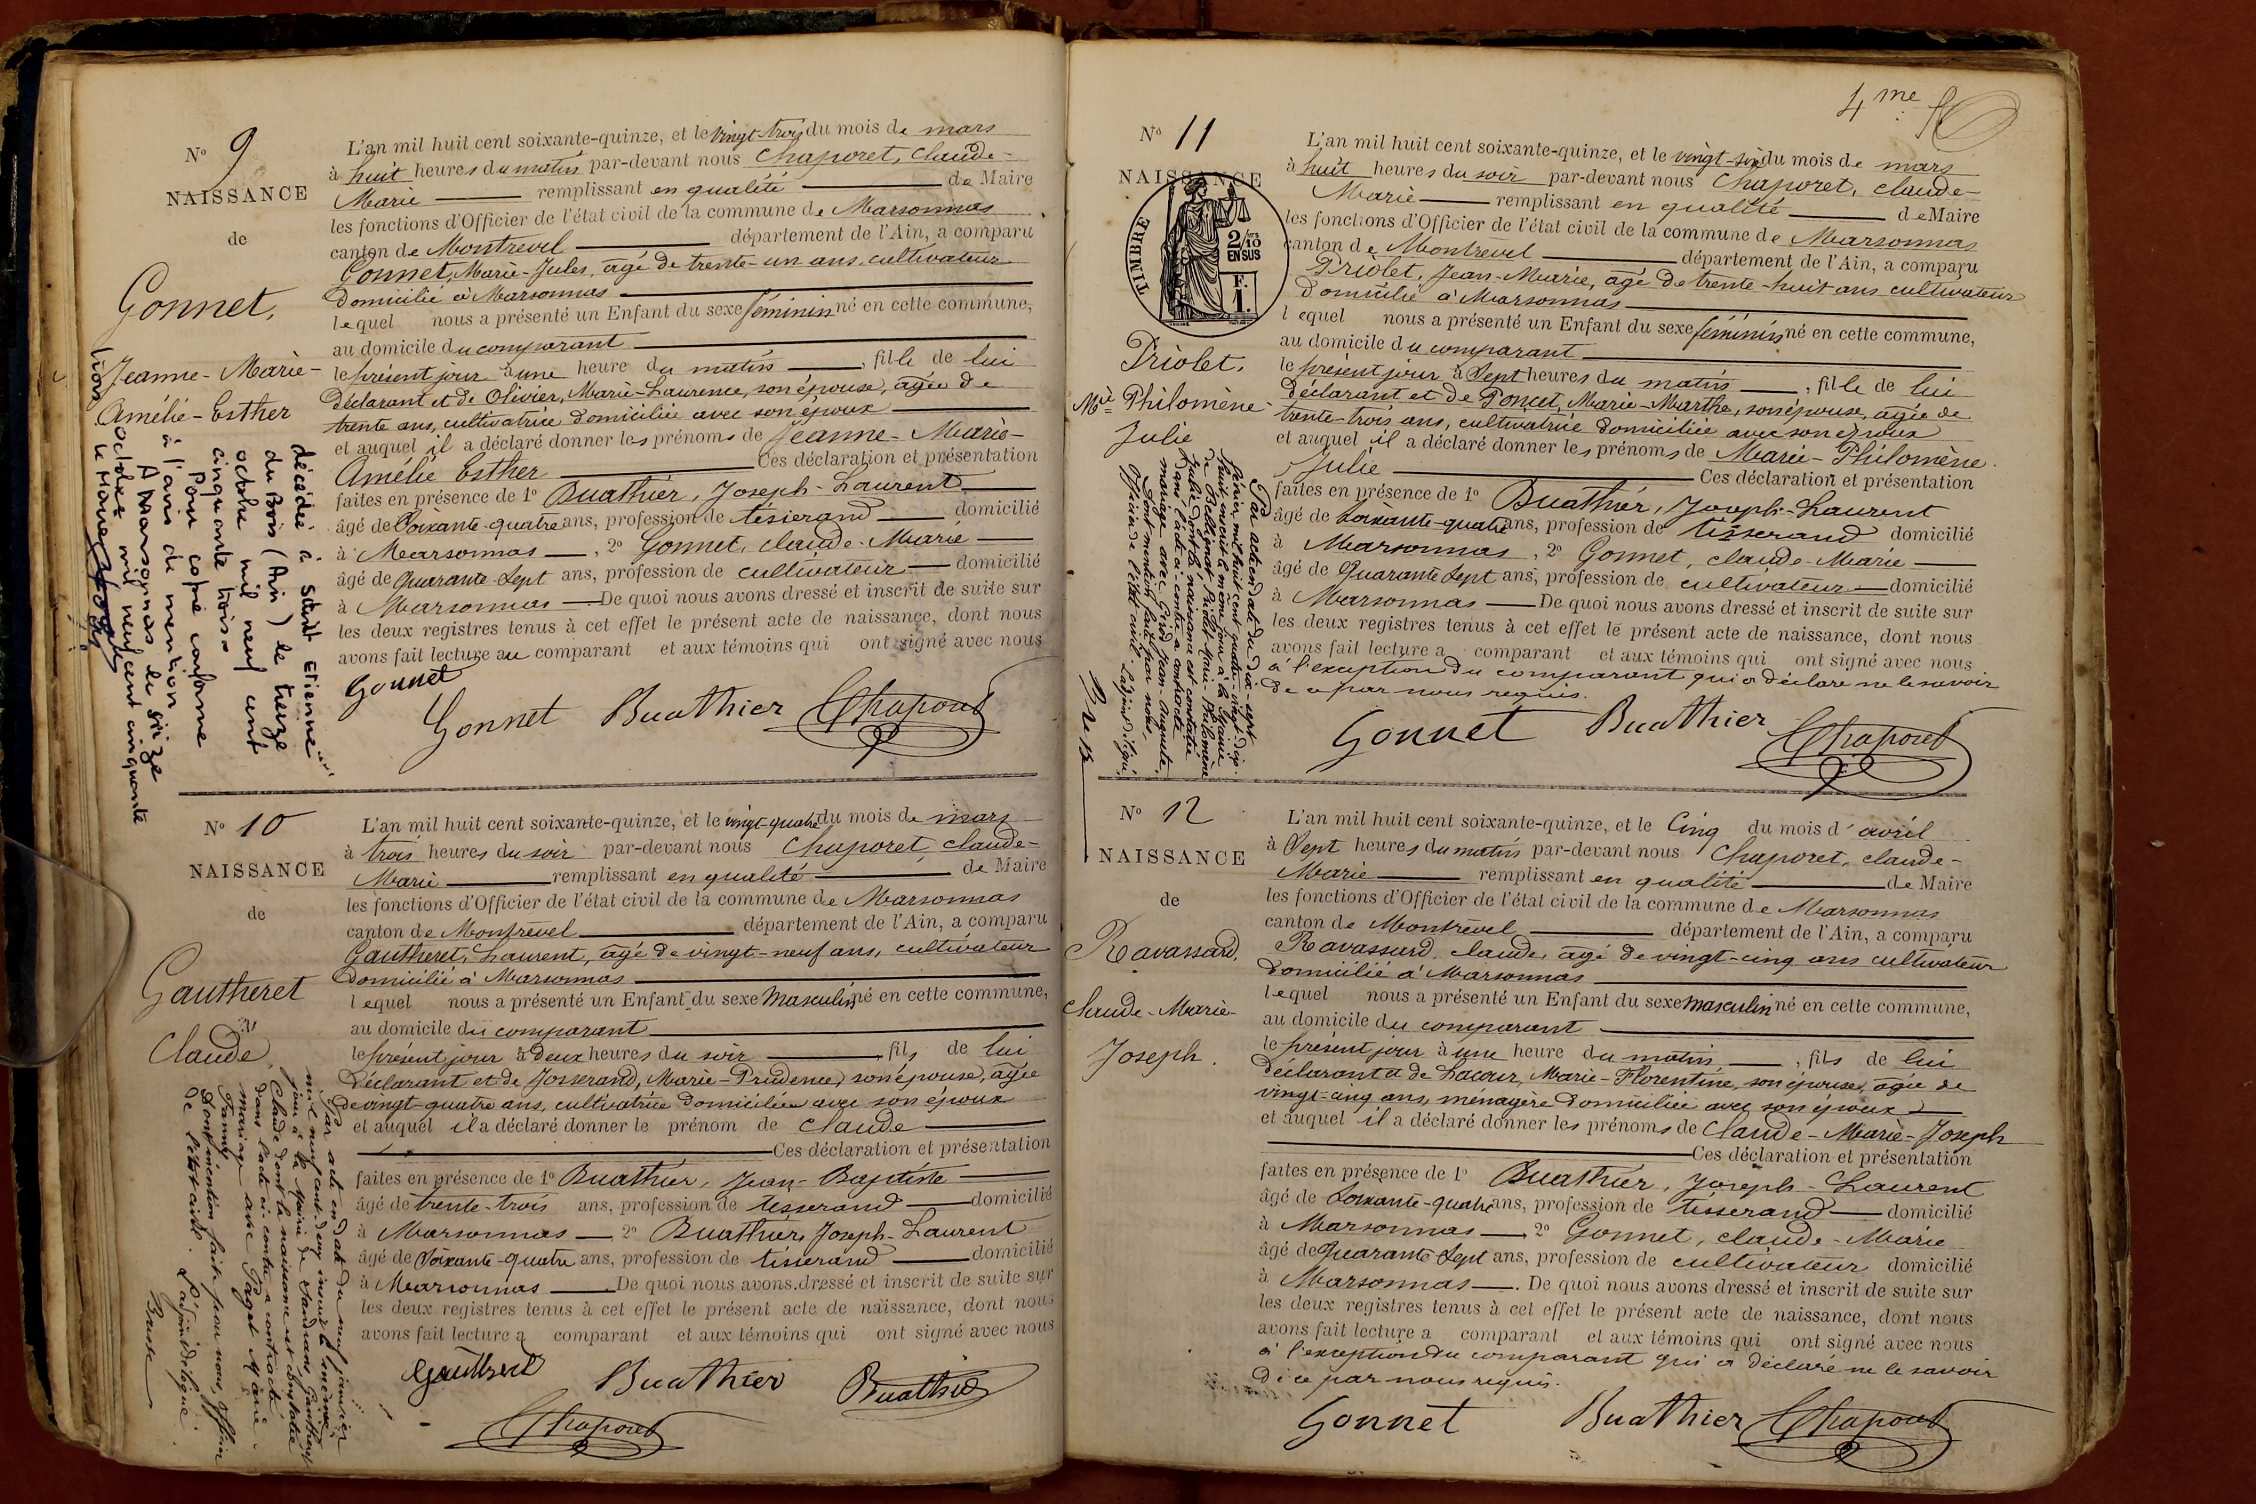 4me fo
No 9
NAISSANCE
de
Gonnet,
Jeanne-Marie-
Amélie-Esther
décédée à Saint Etienne
du Bois (Ain) le treize
octobre mil neuf cent
cinquante trois
Pour copie conforme
à l'avis de mention
A Marsonnas, le seize
octobre mil neuf cent cinquante
trois
Le Maire
L'an mil huit cent soixante-quinze, et le vingt-trois du mois de mars
à huit heures du matin par-devant nous Chaporet, Claude-
Marie remplissant en qualité de Maire
les fonctions d'Officier de l'état civil de la commune de Marsonnas
canton de Montrevel département de l'Ain, a comparu
Gonnet, Marie-Jules, âgé de trente-un ans, cultivateur
domicilié à Marsonnas
lequel nous a présenté un Enfant du sexe féminin né en cette commune,
au domicile du comparant
le présent jour à une heure du matin, fille de lui
déclarant et de Olivier, Marie-Laurence, son épouse, âgée de
trente ans, cultivatrice domiciliée avec son époux
et auquel il a déclaré donner les prénoms de Jeanne-Marie-
Amélie Esther Ces déclaration et présentation
faites en présence de 1o Buathier, Joseph-Laurent
âgé de soixante-quatre ans, profession de tisserand domicilié
à Marsonnas, 2o Gonnet, Claude-Marie
âgé de quarante-sept ans, profession de cultivateur domicilié
à Marsonnas De quoi nous avons dressé et inscrit de suite sur
les deux registres tenus à cet effet le présent acte de naissance, dont nous
avons fait lecture au comparant et aux témoins qui ont signé avec nous
Gonnet
Gonnet Buathier Chaporet
No 10
NAISSANCE
de
Gautheret
Claude
Par acte en date du neuf janvier
mil neuf cent deux inscrit le même
jour à la Mairie de Gautheret
Claude dont la naissance est constatée
dans l'acte ci-contre a contracté
mariage avec Paget Marie
Fanny
Dont mention faite par nous, officier
de l'état civil. L'adjoint délégué.
L'an mil huit cent soixante-quinze, et le vingt-quatre du mois de mars
à trois heures du soir par-devant nous Chaporet, Claude-
Marie remplissant en qualité de Maire
les fonctions d'Officier de l'état civil de la commune de Marsonnas
canton de Montrevel département de l'Ain, a comparu
Gautheret, Laurent, âgé de vingt-neuf ans, cultivateur
domicilié à Marsonnas
lequel nous a présenté un Enfant du sexe masculin né en cette commune,
au domicile du comparant
le présent jour à deux heures du soir, fils de lui
déclarant et de Josserand, Marie-Prudence, son épouse, âgée
de vingt-quatre ans, cultivatrice domiciliée avec son époux
et auquel il a déclaré donner le prénom de Claude
Ces déclaration et présentation
faites en présence de 1o Buathier, Jean-Baptiste
âgé de trente-trois ans, profession de tisserand domicilié
à Marsonnas, 2o Buathier, Joseph-Laurent
âgé de soixante-quatre ans, profession de tisserand domicilié
à Marsonnas De quoi nous avons dressé et inscrit de suite sur
les deux registres tenus à cet effet le présent acte de naissance, dont nous
avons fait lecture a comparant et aux témoins qui ont signé avec nous
Gautheret Buathier Buathier
Chaporet
No 11
NAISSANCE
TIMBRE
2/10
EN SUS
F.
1.
Priolet.
Mie Philomène-
Julie
Par acte en date du dix-sept
février mil huit cent quatre-vingt-dix-
huit inscrit le même jour à la Mairie
de Bellignat Priolet Marie-Philomène
Julie dont la naissance est constatée
dans l'acte ci-contre a contracté
mariage avec Jean-Auguste,
Dont mention faite par nous,
officier de l'état civil.
L'an mil huit cent soixante-quinze, et le vingt-six du mois de mars
à huit heures du soir par-devant nous Chaporet, Claude-
Marie remplissant en qualité de Maire
les fonctions d'Officier de l'état civil de la commune de Marsonnas
canton de Montrevel département de l'Ain, a comparu
Priolet, Jean-Marie, âgé de trente-huit ans cultivateur
domicilié à Marsonnas
lequel nous a présenté un Enfant du sexe féminin né en cette commune,
au domicile du comparant
le présent jour à sept heures du matin, fille de lui
déclarant et de Poncet, Marie-Marthe, son épouse, âgée de
trente-trois ans, cultivatrice domiciliée avec son époux
et auquel il a déclaré donner les prénoms de Marie-Philomène
Julie Ces déclaration et présentation
faites en présence de 1o Buathier, Joseph-Laurent
âgé de soixante-quatre ans, profession de tisserand domicilié
à Marsonnas, 2o Gonnet, Claude-Marie
âgé de quarante sept ans, profession de cultivateur domicilié
à Marsonnas De quoi nous avons dressé et inscrit de suite sur
les deux registres tenus à cet effet le présent acte de naissance, dont nous
avons fait lecture a comparant et aux témoins qui ont signé avec nous
à l'exception du comparant qui a déclaré ne le savoir
de ce par nous requis.
Gonnet Buathier Chaporet
No 12
NAISSANCE
de
Ravassard,
Claude-Marie-
Joseph.
L'an mil huit cent soixante-quinze, et le cinq du mois d'avril
à sept heures du matin par-devant nous Chaporet, Claude-
Marie remplissant en qualité de Maire
les fonctions d'Officier de l'état civil de la commune de Marsonnas
canton de Montrevel département de l'Ain, a comparu
Ravassard, Claude, âgé de vingt-cinq ans cultivateur
domicilié à Marsonnas
lequel nous a présenté un Enfant du sexe masculin né en cette commune,
au domicile du comparant
le présent jour à une heure du matin, fils de lui
déclarant et de Lacour, Marie-Florentine, son épouse, âgée de
vingt-cinq ans, ménagère domiciliée avec son époux
et auquel il a déclaré donner les prénoms de Claude-Marie-Joseph
Ces déclaration et présentation
faites en présence de 1o Buathier, Joseph-Laurent
âgé de soixante-quatre ans, profession de tisserand domicilié
à Marsonnas, 2o Gonnet, Claude-Marie
âgé de quarante sept ans, profession de cultivateur domicilié
à Marsonnas. De quoi nous avons dressé et inscrit de suite sur
les deux registres tenus à cet effet le présent acte de naissance, dont nous
avons fait lecture a comparant et aux témoins qui ont signé avec nous
à l'exception du comparant qui a déclaré ne le savoir
de ce par nous requis.
Gonnet Buathier Chaporet